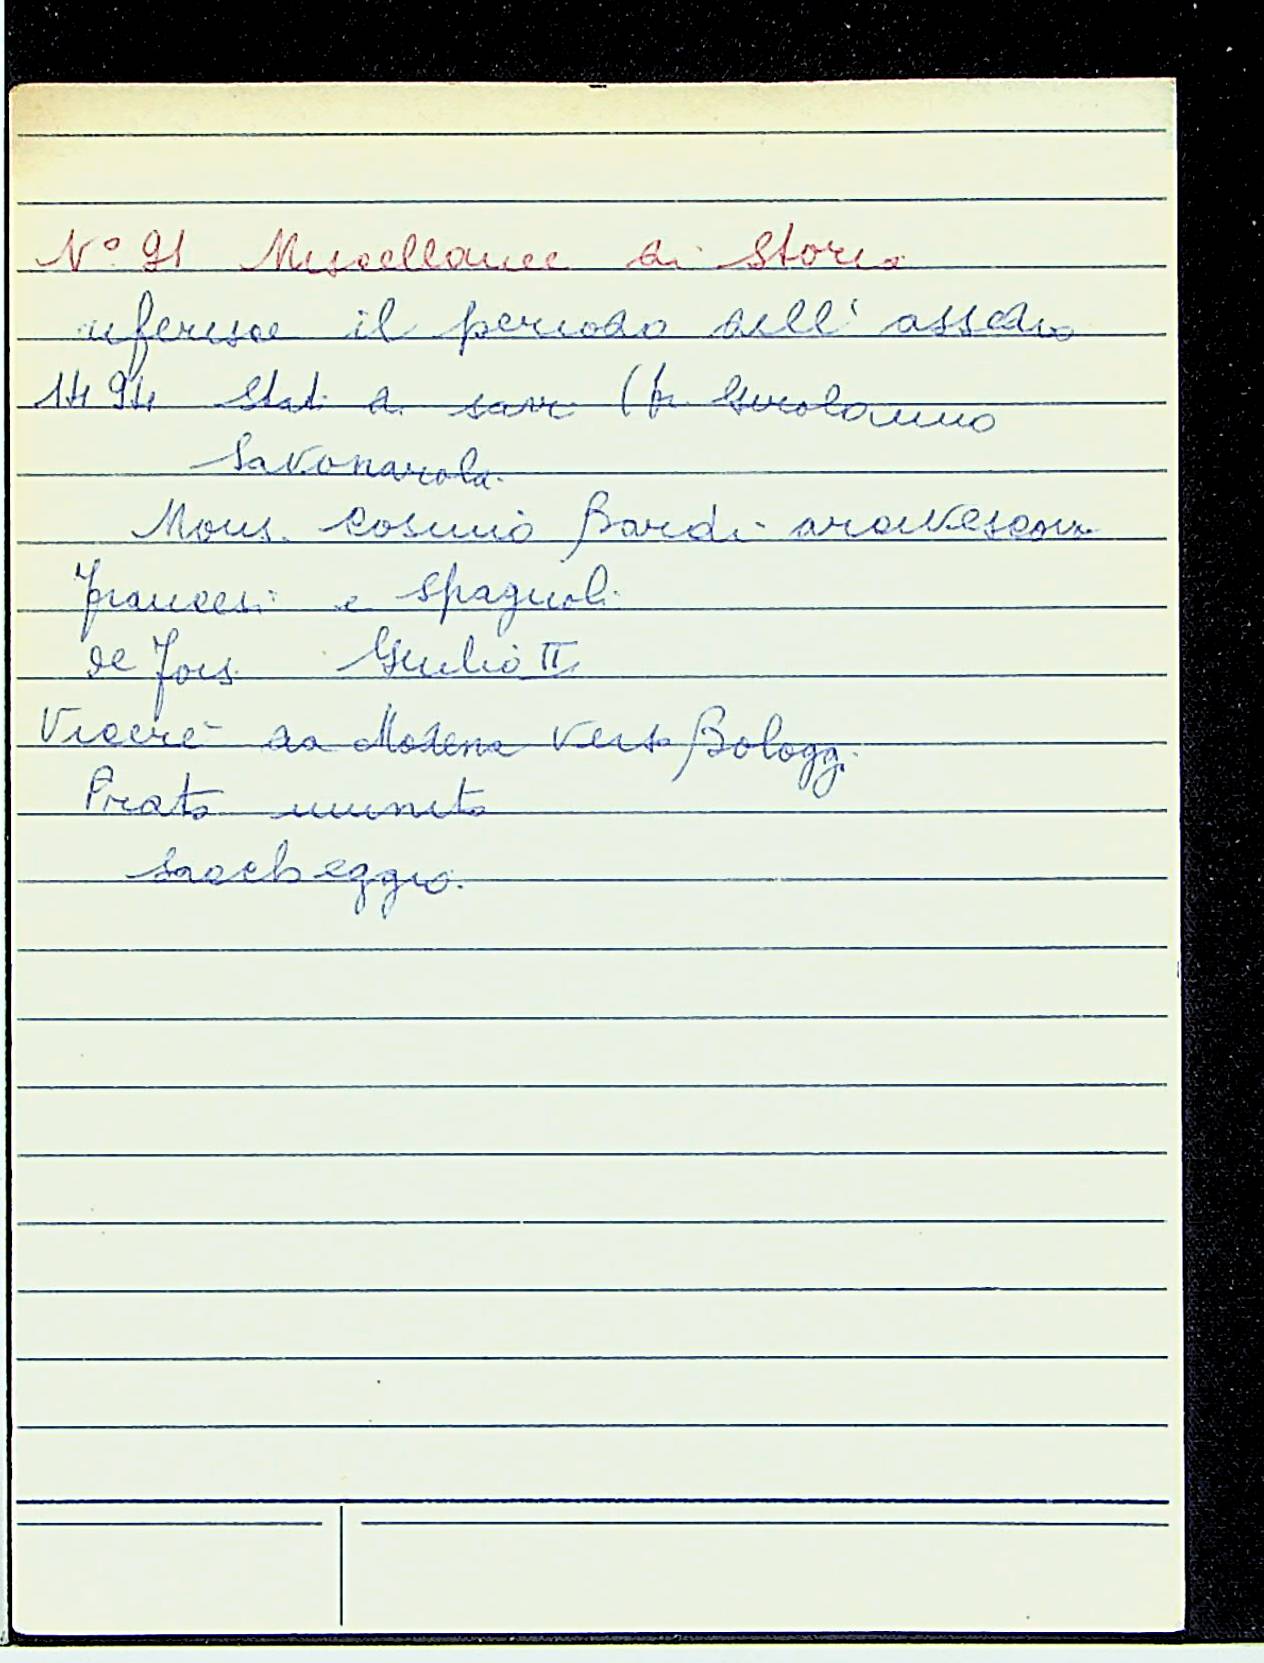 N° 91 Miscellanee di Storia
riferisce il periodo dell' assedio
1494 Stati di savi (fr Girolammo
Savonarola.
Mons. Cosimo Bardi arcivescovo
francesi e spagnoli
de Fois Giulio II
Vicerè da Modena verso Bologg.
Prato munito
saccheggio.